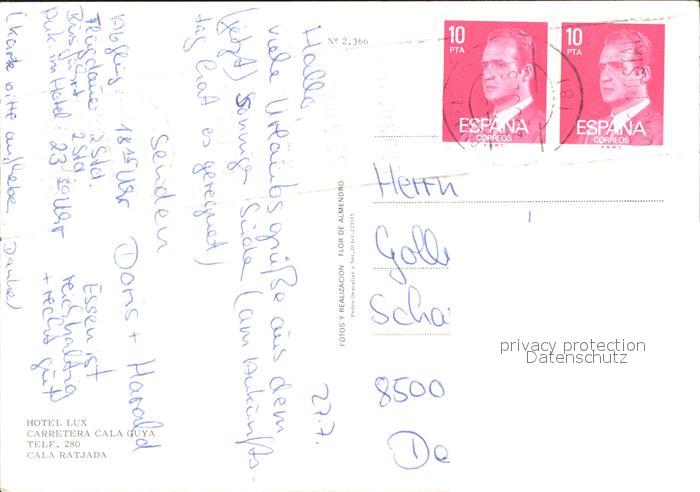 Nº 2.366
22.7.
Hallo,
viele Urlaubsgrüße aus dem
(jetzt) sonnigen Süden (am Ankunfts-
tag hat es geregnet)
senden
Doris + Harald
Abflug: 18 15 Uhr
Flugdauer: 2 Std.
Busfahrt: 2 Std.
Ank. im Hotel: 23 30 Uhr
Essen ist
reichhaltig
+ recht gut
(Karte bitte aufheben. Danke)
HOTEL LUX
CARRETERA CALA GUYA
TELF. 280
CALA RATJADA
FOTOS Y REALIZACION FLOR DE ALMENDRO
10
PTA
ESPAÑA
CORREOS
F.N.M.T.
10
PTA
ESPAÑA
CORREOS
F.N.M.T.
Herrn
Golle
Scha
8500
privacy protection
Datenschutz